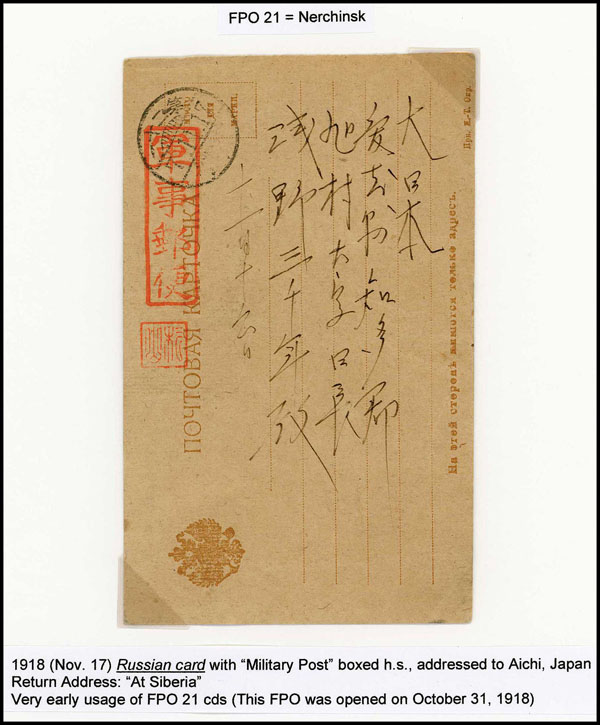 FPO 21 = Nerchinsk
軍事郵便
ПОЧТОВАЯ КАРТОЧКА
На этой сторонѣ пишется только адресъ.
大日本
愛知県知多郡
旭村大字日長
浅野三千年
十一月十六日
1918 (Nov. 17) Russian card with “Military Post” boxed h.s., addressed to Aichi, Japan
Return Address: “At Siberia”
Very early usage of FPO 21 cds (This FPO was opened on October 31, 1918)